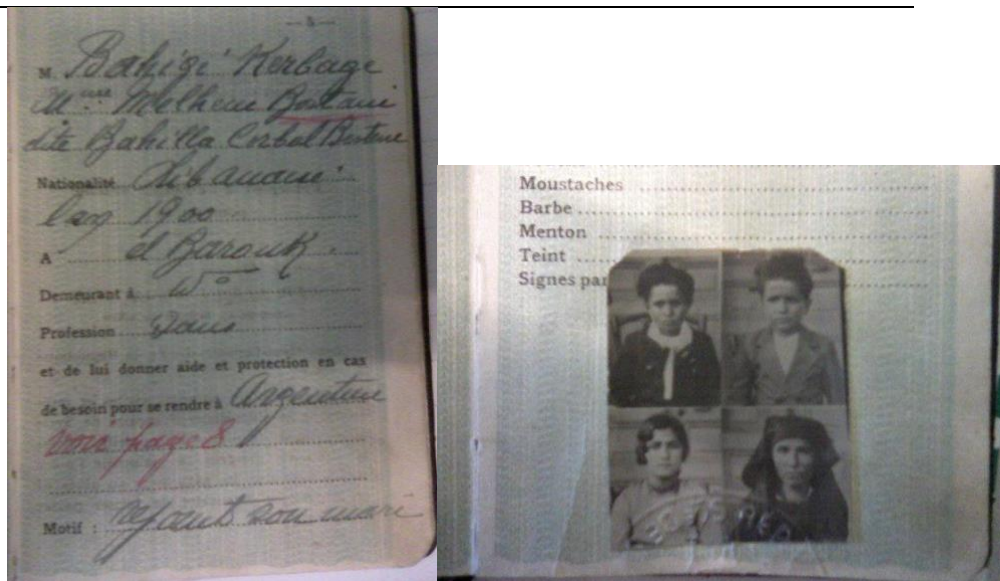 — 5 —
M. Bahigi Kerbage
Mme Melhem Bostani
dite Bahilla Corbal Bestene
Nationalité Libanaise
l'an 1900
A d Barouk
Demeurant à
Profession Sans
et de lui donner aide et protection en cas
de besoin pour se rendre à Argentine
voir page 8
Motif : rejoint son mari
Moustaches
Barbe
Menton
Teint
Signes par